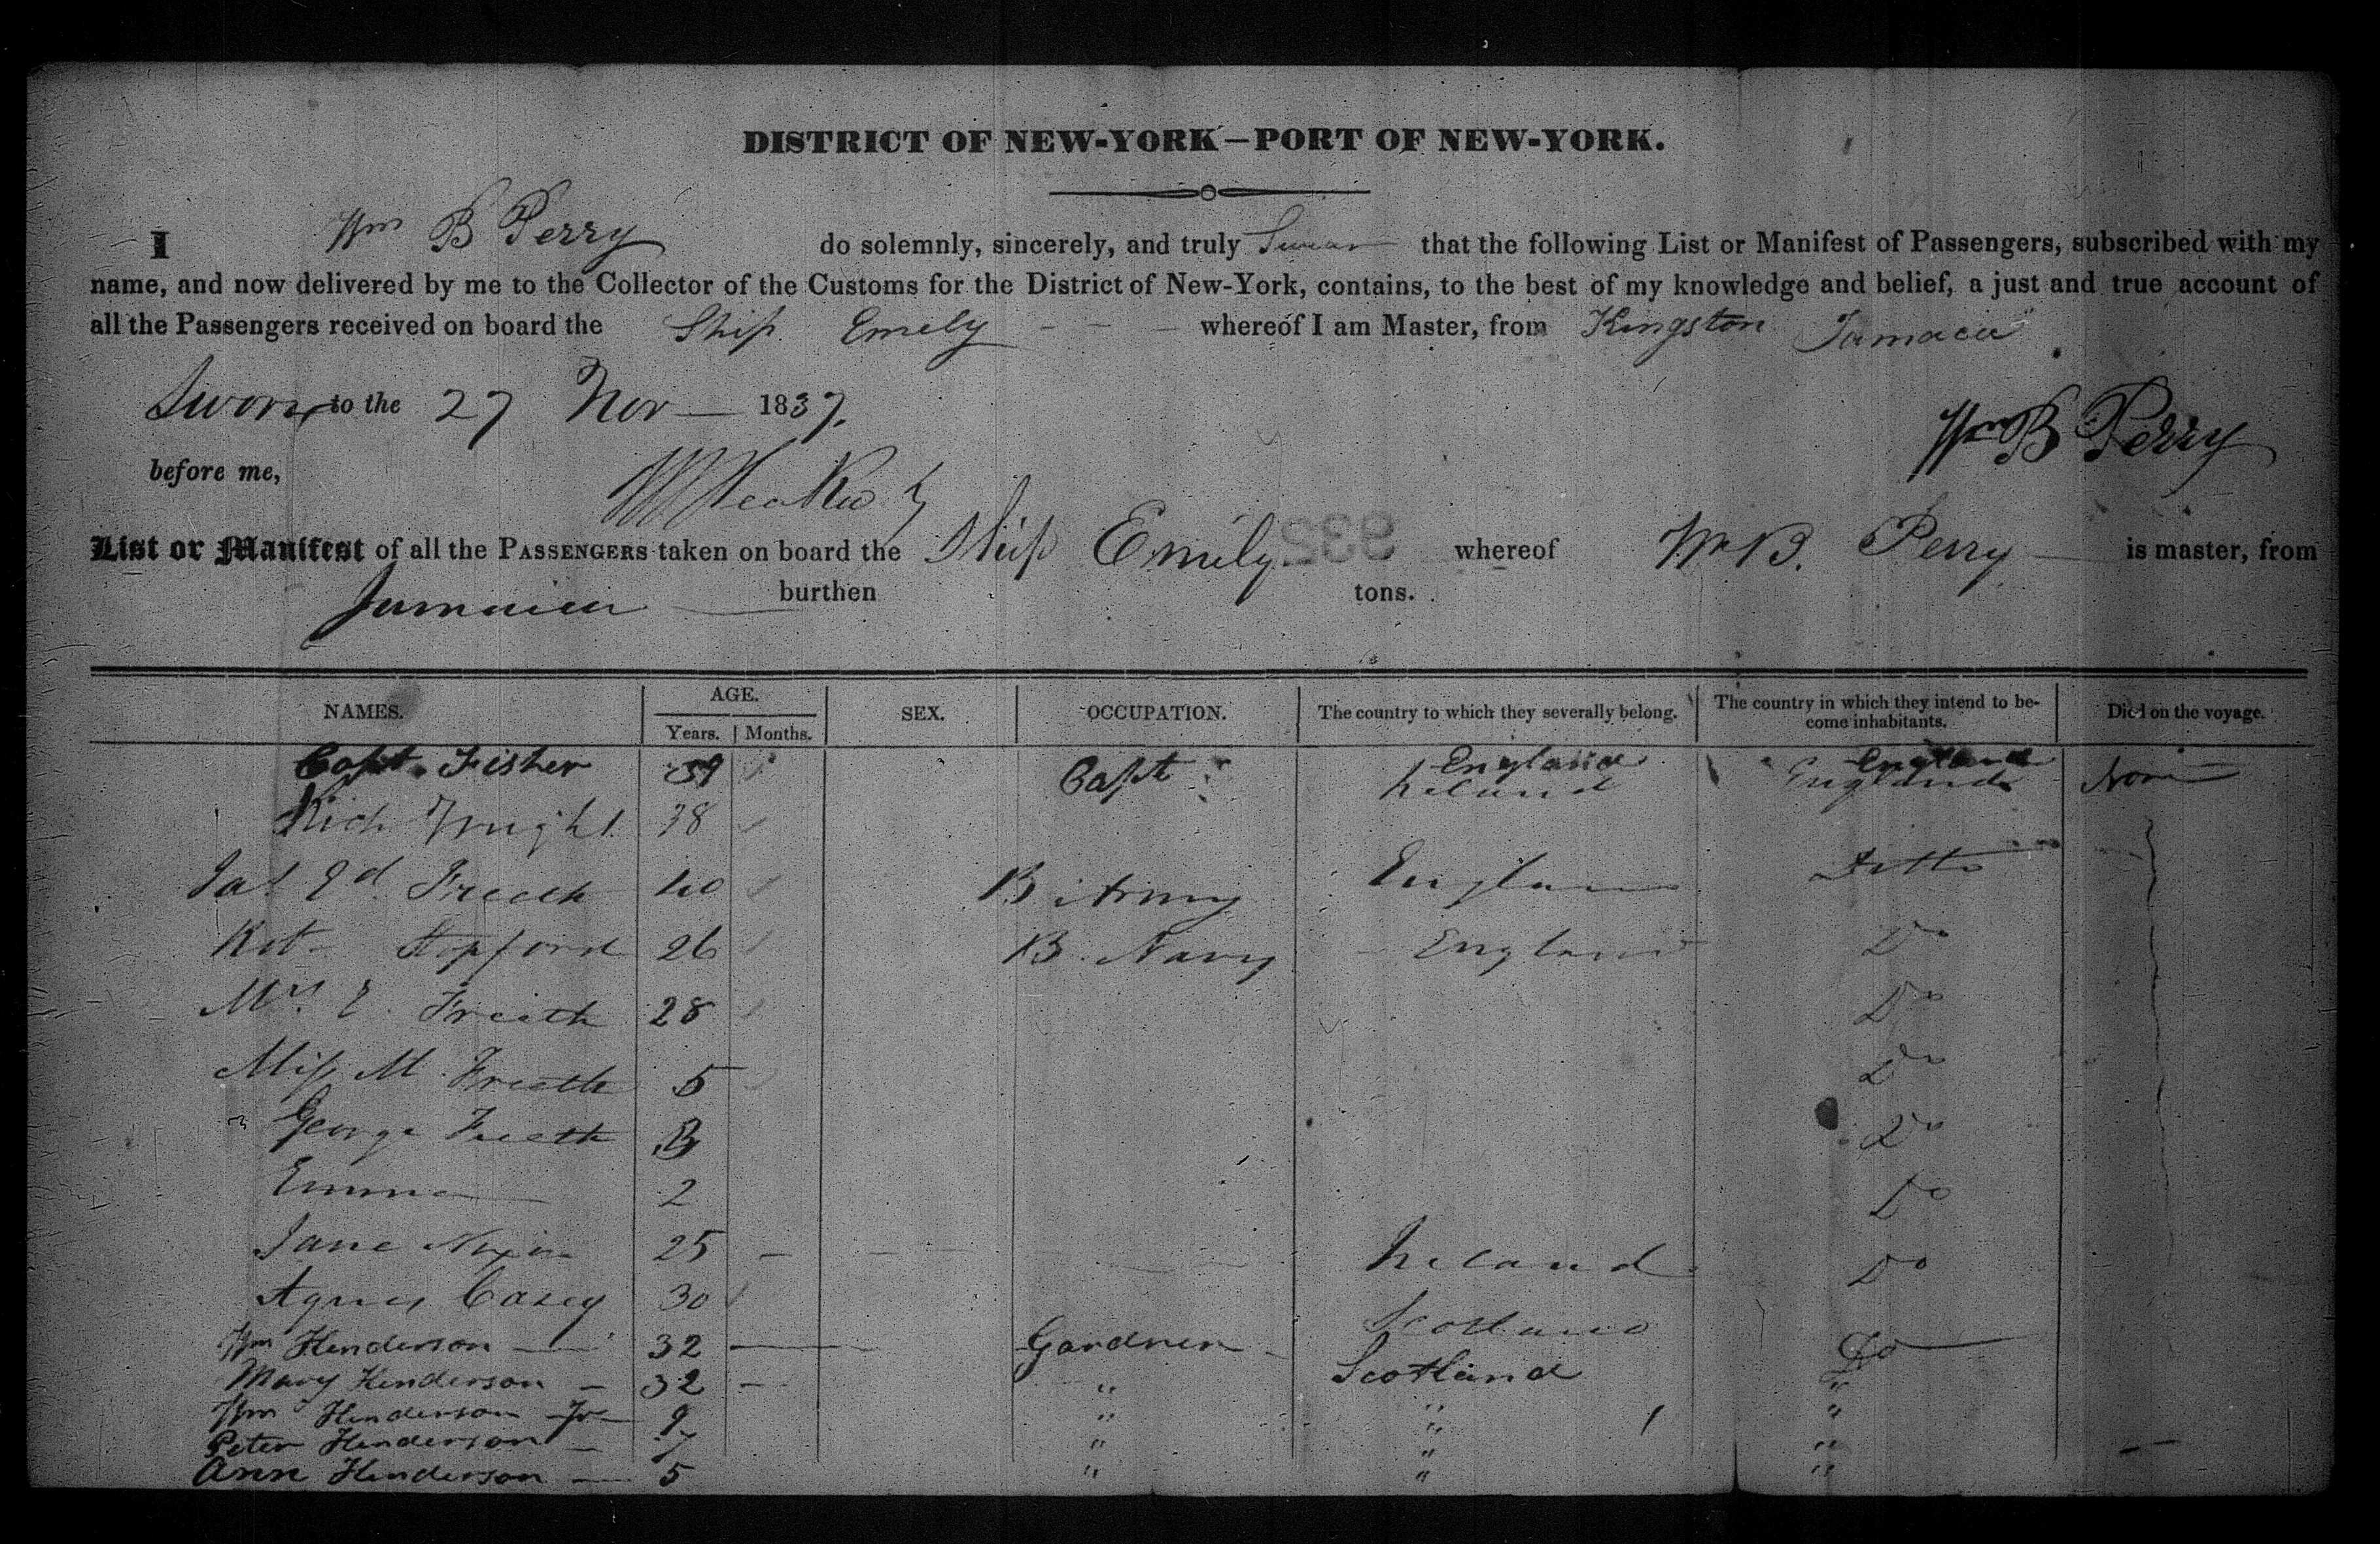 DISTRICT OF NEW-YORK—PORT OF NEW-YORK.
I Wm B Perry do solemnly, sincerely, and truly Swear that the following List or Manifest of Passengers, subscribed with my
name, and now delivered by me to the Collector of the Customs for the District of New-York, contains, to the best of my knowledge and belief, a just and true account of
all the Passengers received on board the Ship Emely whereof I am Master, from Kingston Jamaca
Sworn to the 27 Nov 1837.
Wm B Perry
before me,
List or Manifest of all the PASSENGERS taken on board the Ship Emily 932 whereof Wm B. Perry is master, from
Jamaica burthen tons.
NAMES. AGE. Years. Months. SEX. OCCUPATION. The country to which they severally belong. The country in which they intend to become inhabitants. Died on the voyage.
Capt. Fisher 39 Capt England England None
Rich Wright 38 Ireland England
Jas Ed. Freeth 40 B Army England Ditto
Stopford 26 B. Navy England Do
Mrs. E. Freeth 28 Do
Miss M. Freeth 5 Do
George Freeth 3 Do
Emma 2 Do
Jane Nixon 25 — Ireland Do
Agnes Casey 30 Scotland
Wm Henderson — 32 — Gardner Scotland Do
Mary Henderson — 32 — " "
Wm Henderson Jr 9 " " "
Peter Henderson — 7 " " "
Ann Henderson — 5 " " "